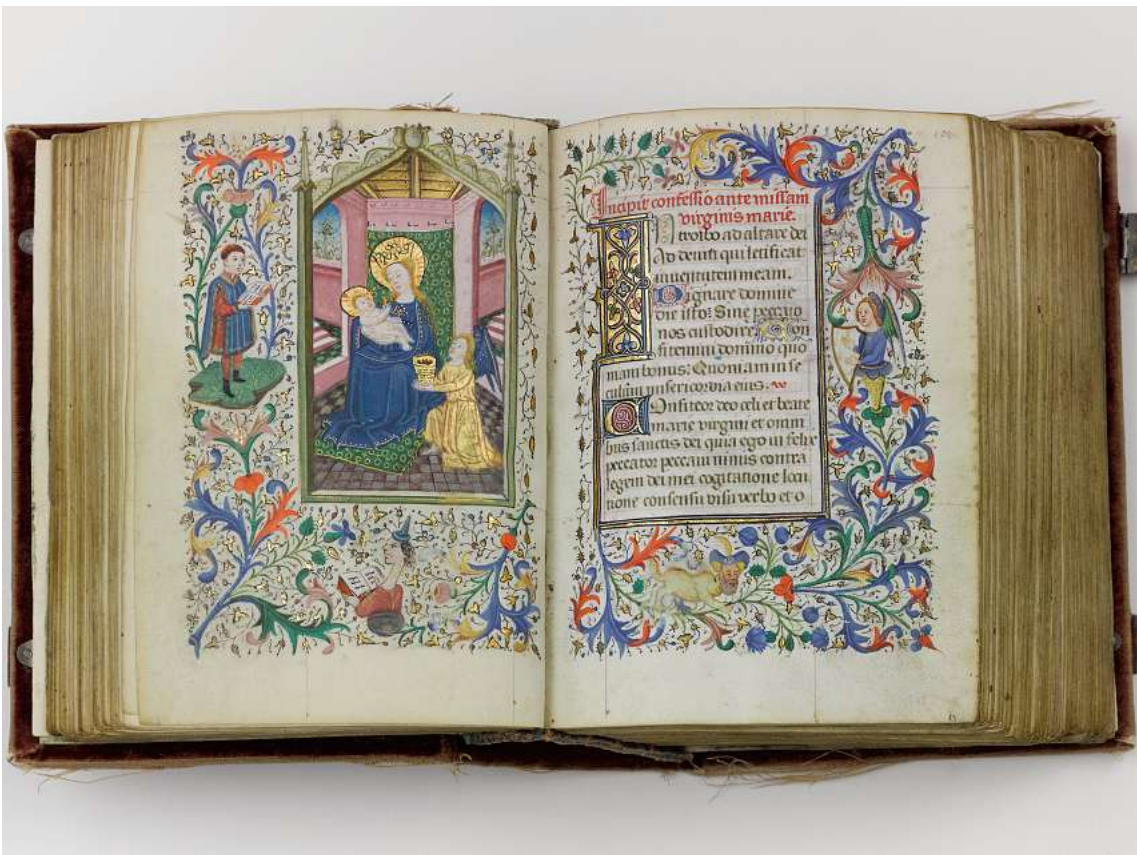 Incipit confessio ante missam
virginis marie.
Introibo ad altare dei
Ad deum qui letificat
iuventutem meam.
Dignare domine
die isto: Sine peccato
nos custodire. Con
fitemini domino quo
niam bonus: Quoniam in se
culum misericordia eius.
Confiteor deo celi et beate
marie virgini et omni
bus sanctis dei quia ego in felix
peccator peccaui nimis contra
legem dei mei cogitatione locu
tione consensu visu verbo et o